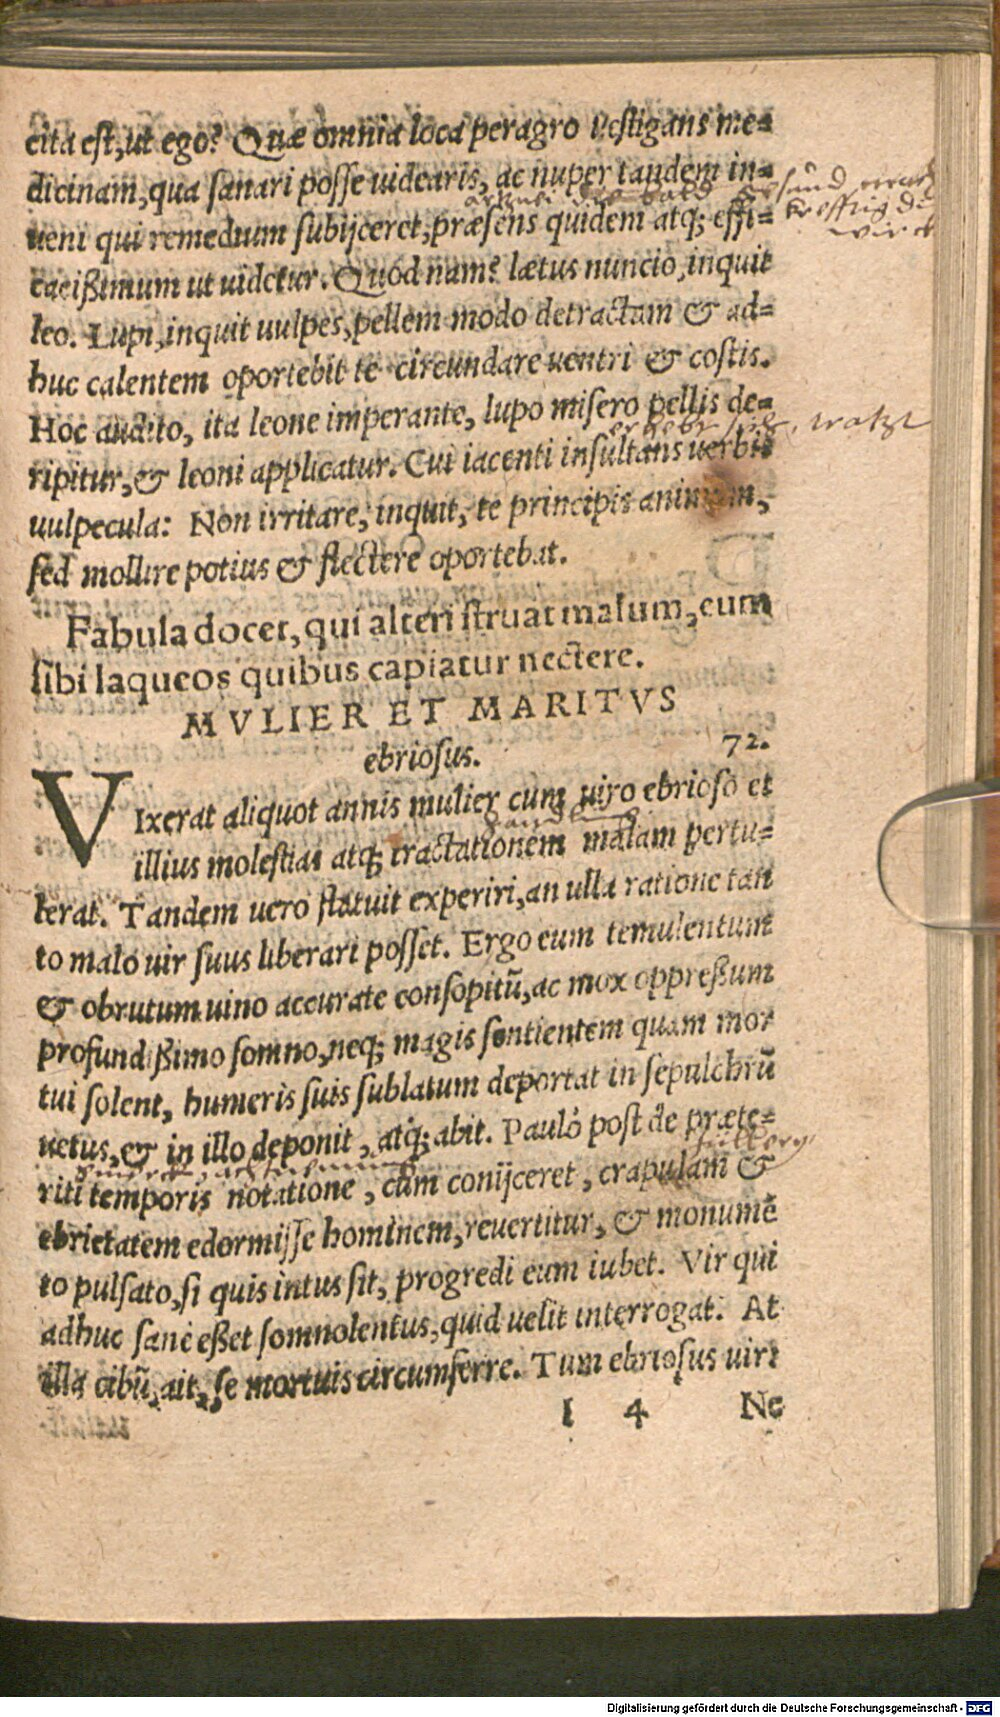 cita est, ut ego? Quæ omnia loca peragro vestigans me=
dicinam, qua sanari posse uidearis, ac nuper tandem in=
ueni qui remedium subijceret, præsens quidem atq; effi=
cacißimum ut uidetur. Quod nam? lætus nuncio, inquit
leo. Lupi, inquit uulpes, pellem modo detractam & ad=
huc calentem oportebit te circundare uentri & costis.
Hoc audito, ita leone imperante, lupo misero pellis de=
ripitur, & leoni applicatur. Cui iacenti insultans uerbis
uulpecula: Non irritare, inquit, te principis animum,
sed mollire potius & flectere oportebat.
Fabula docet, qui alteri struat malum, eum
sibi laqueos quibus capiatur nectere.
MVLIER ET MARITVS
ebriosus. 72.
VIxerat aliquot annis mulier cum uiro ebrioso et
illius molestias atq; tractationem malam pertu=
lerat. Tandem uero statuit experiri, an ulla ratione tan
to malo uir suus liberari posset. Ergo eum temulentum
& obrutum uino accurate consopitũ, ac mox oppreßum
profundißimo somno, neq; magis sentientem quam mor
tui solent, humeris suis sublatum deportat in sepulchrũ
uetus, & in illo deponit, atq; abit. Paulò post de præte=
riti temporis notatione, cùm conijceret, crapulam &
ebrietatem edormisse hominem, reuertitur, & monumẽ
to pulsato, si quis intus sit, progredi eum iubet. Vir qui
adhuc sanè eßet somnolentus, quid uelit interrogat. At
illa cibũ, ait, se mortuis circumferre. Tum ebriosus uir:
I 4 Ne
Digitalisierung gefördert durch die Deutsche Forschungsgemeinschaft - DFG